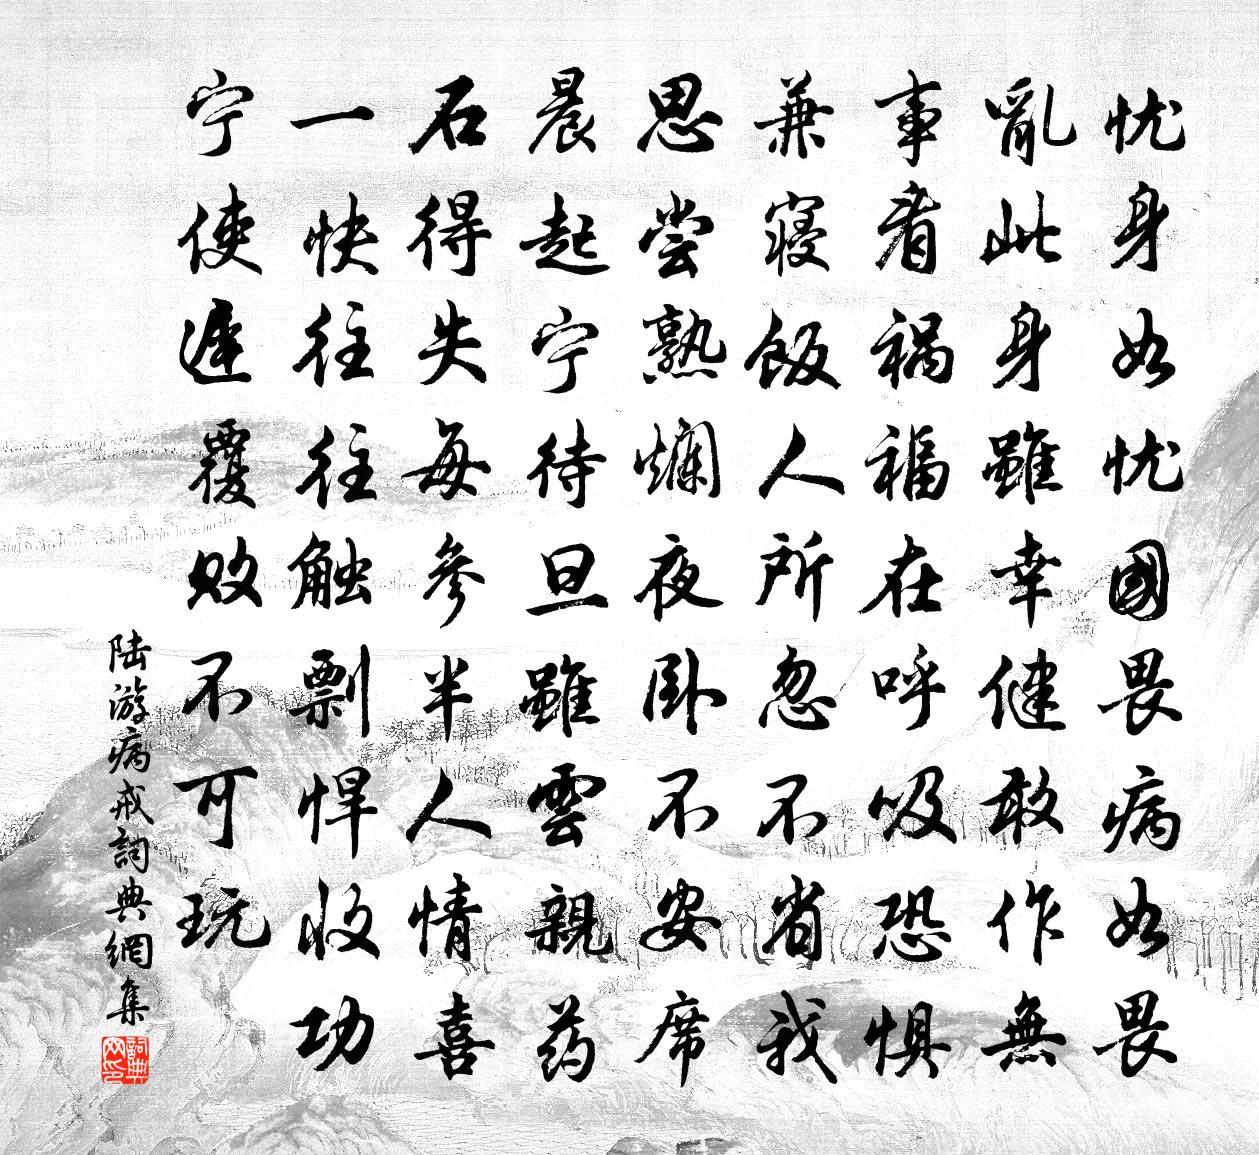 忧身如忧國畏病如畏
亂此身雖幸健敢作無
事看祸福在呼吸恐惧
兼寝飯人所忽不省我
思尝熟爛夜卧不安席
晨起宁待旦雖雲親药
石得失每參半人情喜
一快往往触剽悍收功
宁使遲覆败不可玩
陆游病戒詞典網集